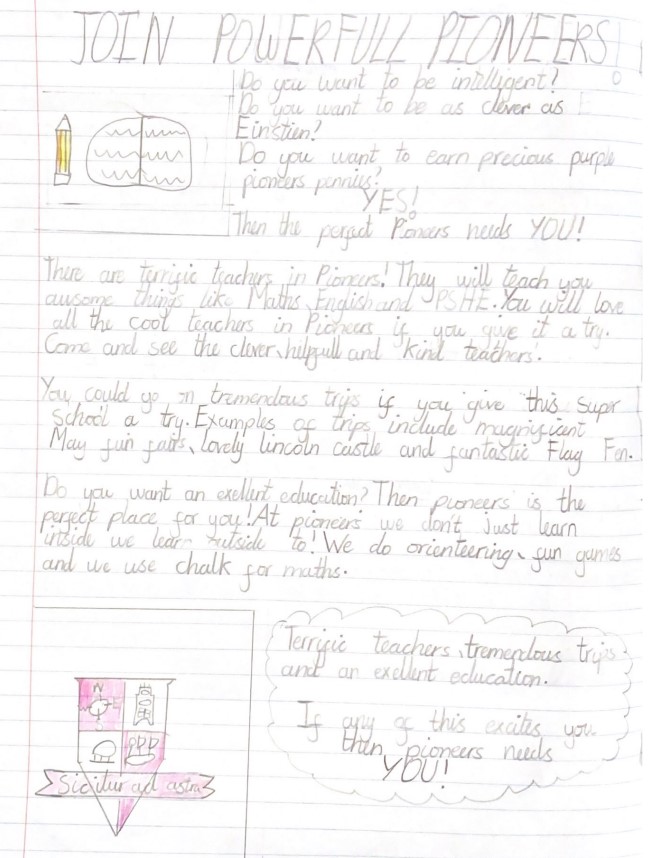 JOIN POWERFULL PIONEERS!
Do you want to be intilligent?
Do you want to be as clever as E
Einstien?
Do you want to earn precious purple
pioneers pennies?
YES!
Then the perfect Pioneers needs YOU!
There are terrific teachers in Pioneers! They will teach you
awsome things like Maths, English and PSHE. You will love
all the cool teachers in Pioneers if you give it a try.
Come and see the clever, helpfull and kind teachers.
You could go on tremendous trips if you give this super
school a try. Examples of trips include magnificant
May fun fairs, lovely lincoln castle and fantastic Flag Fen.
Do you want an exellent education? Then pioneers is the
perfect place for you! At pioneers we don't just learn
inside we learn outside to! We do orienteering, fun games
and we use chalk for maths.
N
E
Sic itur ad astra
Terrific teachers, tremendous trips
and an exellent education.
If any of this excites you
then pioneers needs
YOU!